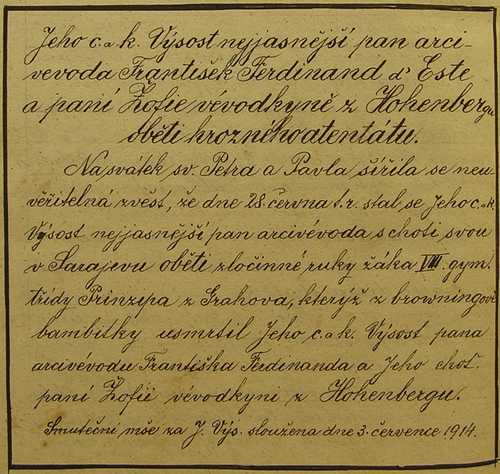 Jeho c. a k. Výsost nejjasnější pan arci-
vevoda František Ferdinand d' Este
a paní Žofie vévodkyně z Hohenbergu
oběti hrozného atentátu.
Na svátek sv. Petra a Pavla šířila se neu-
věřitelná zvěst, že dne 28. června t. r. stal se Jeho c. a k.
Výsost nejjasnější pan arcivévoda s chotí svou
v Sarajevu obětí zločinné ruky žáka VIII. gym.
třídy Prinzipa z Grahova, kterýž z browningově
bambitky usmrtil Jeho c. a k. Výsost pana
arcivévodu Františka Ferdinanda a Jeho choť
paní Žofii vévodkyni z Hohenbergu.
Smuteční mše za J. Výs. sloužena dne 3. července 1914.